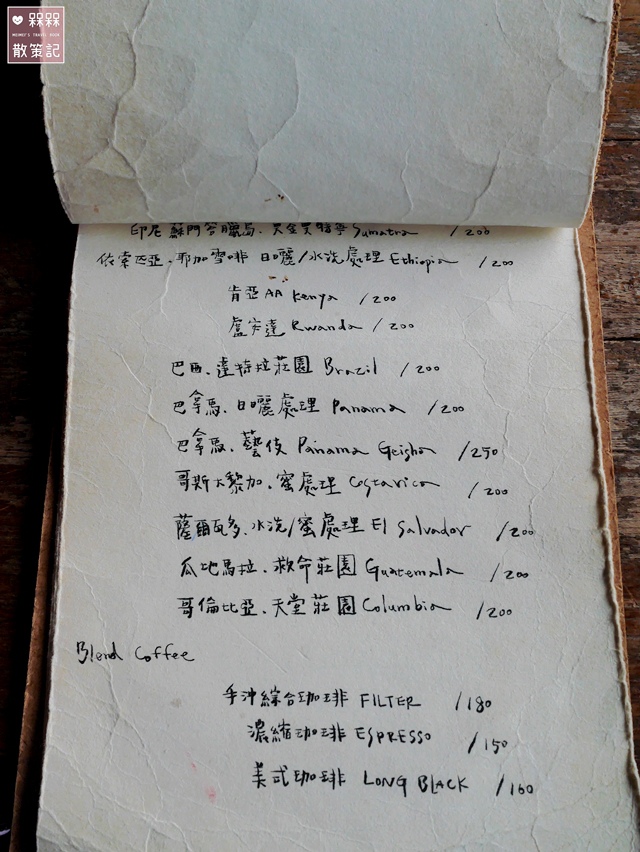 槑槑
MEIMEI'S TRAVEL BOOK
散策記
印尼 蘇門答臘島、黃金曼特寧 Sumatra /200
依索匹亞、耶加雪啡 日曬/水洗處理 Ethiopia /200
肯亞 AA Kenya /200
盧安達 Rwanda /200
巴西、達特拉莊園 Brazil /200
巴拿馬、日曬處理 Panama /200
巴拿馬、藝伎 Panama Geisha /250
哥斯大黎加、蜜處理 Costarica /200
薩爾瓦多、水洗/蜜處理 El Salvador /200
瓜地馬拉、救命莊園 Guatemala /200
哥倫比亞、天堂莊園 Columbia /200
Blend Coffee
手沖綜合珈琲 FILTER /180
濃縮珈琲 ESPRESSO /150
美式珈琲 LONG BLACK /160